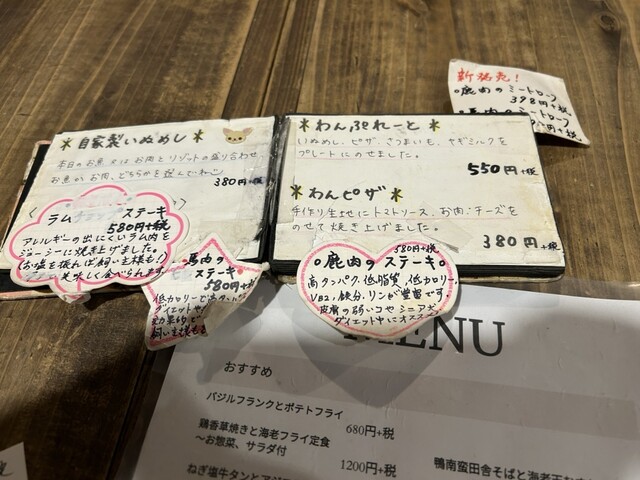 新発売!
○鹿肉のミートローフ
398円+税
馬肉のミートローフ
円+税
＊自家製いぬめし＊
本日のお魚又はお肉とリゾットの盛り合わせ
お魚かお肉、どちらかを選んでねっ
380円+税
ラム ステーキ
580円+税
アレルギーの出にくいラム肉を
ジューシーに焼き上げました。
お塩を振れば飼い主様も!
美味しく食べられます
馬肉の
ステーキ
580円+税
低カロリーで
ダイエットや
＊わんぷれーと＊
いぬめし、ピザ、さつまいも、ヤギミルクを
プレートにのせました。
550円+税
＊わんピザ＊
手作り生地にトマトソース、お肉、チーズを
のせて焼き上げました。
380円+税
580円+税
○鹿肉のステーキ○
高タンパク、低脂質、低カロリー
VB2、鉄分、リンが豊富です
皮膚の弱いコやシニア犬
ダイエット中にオススメ
MENU
おすすめ
バジルフランクとポテトフライ
680円+税
鶏香草焼きと海老フライ定食
～お惣菜、サラダ付
1200円+税
ねぎ塩牛タンと
鴨南蛮田舎そばと海老天